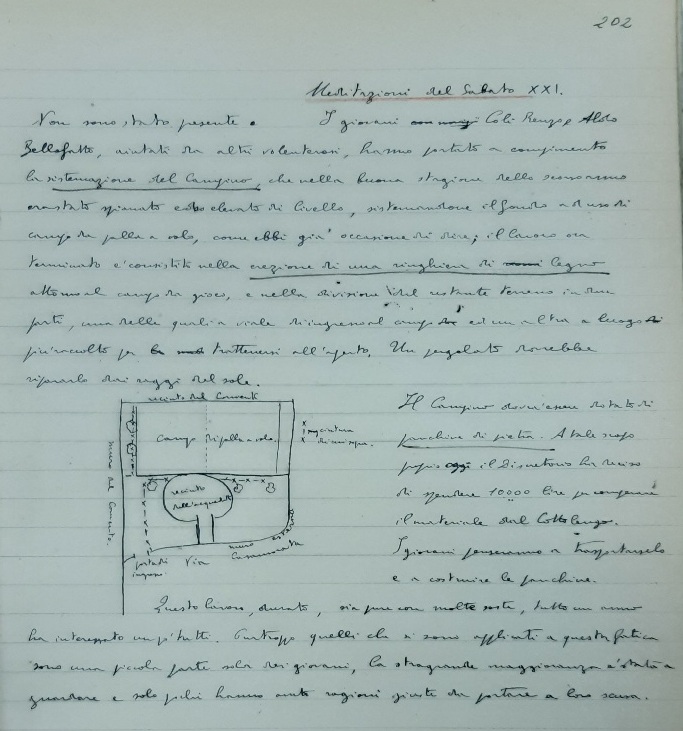 202
Meditazioni del Sabato XXI.
Non sono stato presente. I giovani Coli Renzo, Aldo
Bellofatto, aiutati da altri volenterosi, hanno portato a compimento
la sistemazione del Campino, che nella buona stagione dello scorso anno
era stato spianato ed elevato di livello, sistemandone il fondo ad uso di
campo da palla a volo, come ebbi già occasione di dire; il lavoro ora
terminato è consistito nella erezione di una ringhiera di legno
attorno al campo da gioco, e nella divisione del restante terreno in due
parti, una delle quali a viale di ingresso al campo ed un altra a luogo
più raccolto per trattenersi all'aperto. Un pergolato dovrebbe
ripararlo dai raggi del sole.
recinto del Convento
muro del Convento.
Campo di palla a volo
recinto dell'acquedotto
porta di ingresso
Via
muro esterno
Il Campino dovrà essere dotato di
panchine di pietra. A tale scopo
proprio oggi il Direttorio ha deciso
di spendere 10000 lire per comperare
il materiale dal Cottolengo.
I giovani penseranno a trasportarselo
e a costruire le panchine.
Questo lavoro, durato, sia pure con molte soste, tutto un anno
ha interessato un po' tutti. Purtroppo quelli che si sono applicati a questa fatica
sono una piccola parte sola dei giovani, la stragrande maggioranza è stata a
guardare e solo pochi hanno avuto ragioni giuste da portare a loro scusa.